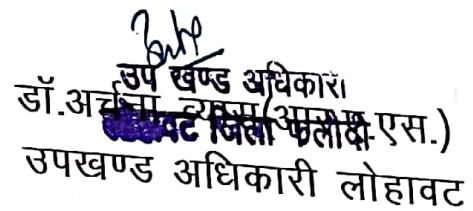 उप खण्ड अधिकारी
डॉ.अर्चना व्यास(आर.ए.एस.)
जिला फलौदी
उपखण्ड अधिकारी लोहावट